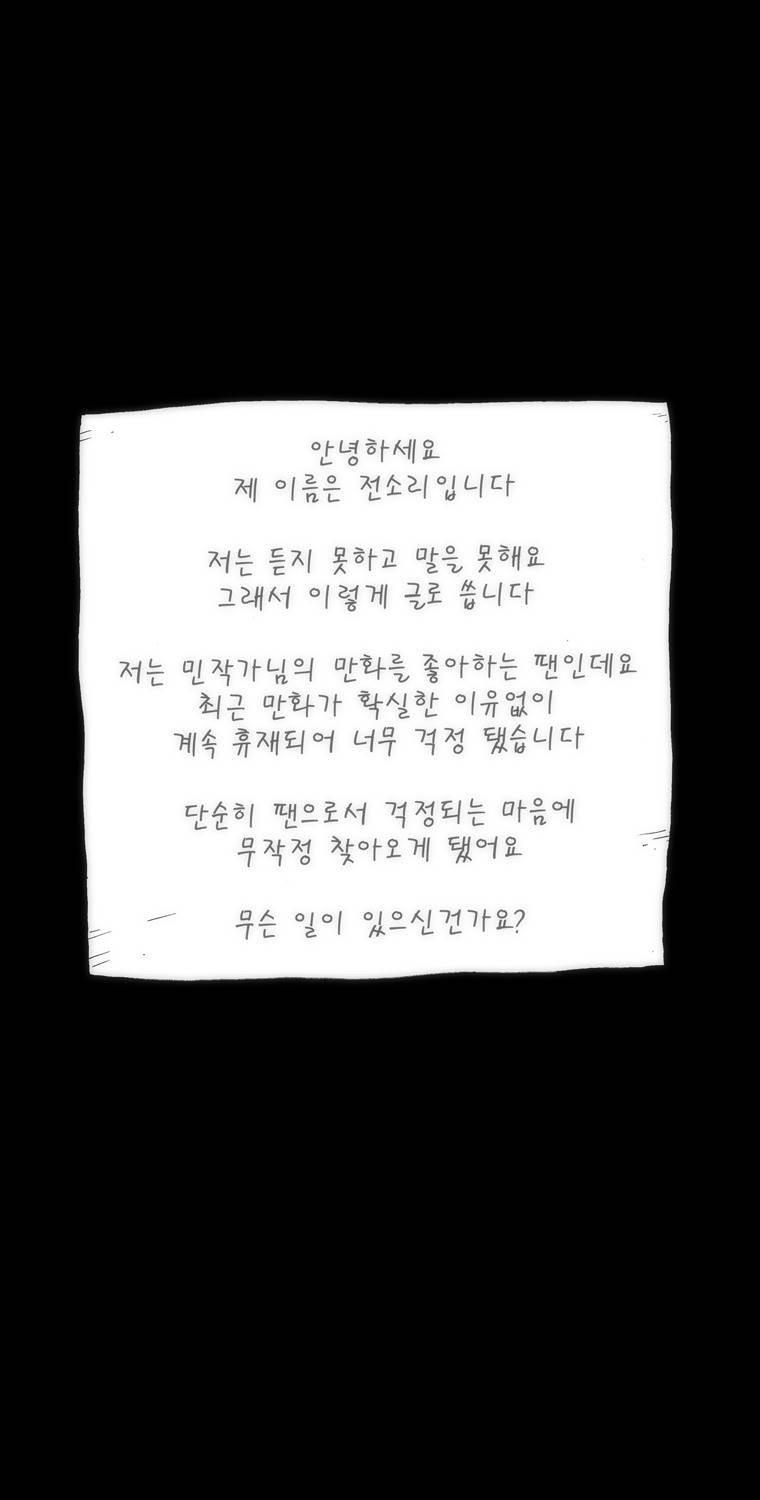 안녕하세요
제 이름은 전소리입니다
저는 듣지 못하고 말을 못해요
그래서 이렇게 글로 씁니다
저는 민작가님의 만화를 좋아하는 팬인데요
최근 만화가 확실한 이유없이
계속 휴재되어 너무 걱정 됐습니다
단순히 팬으로서 걱정되는 마음에
무작정 찾아오게 됐어요
무슨 일이 있으신건가요?